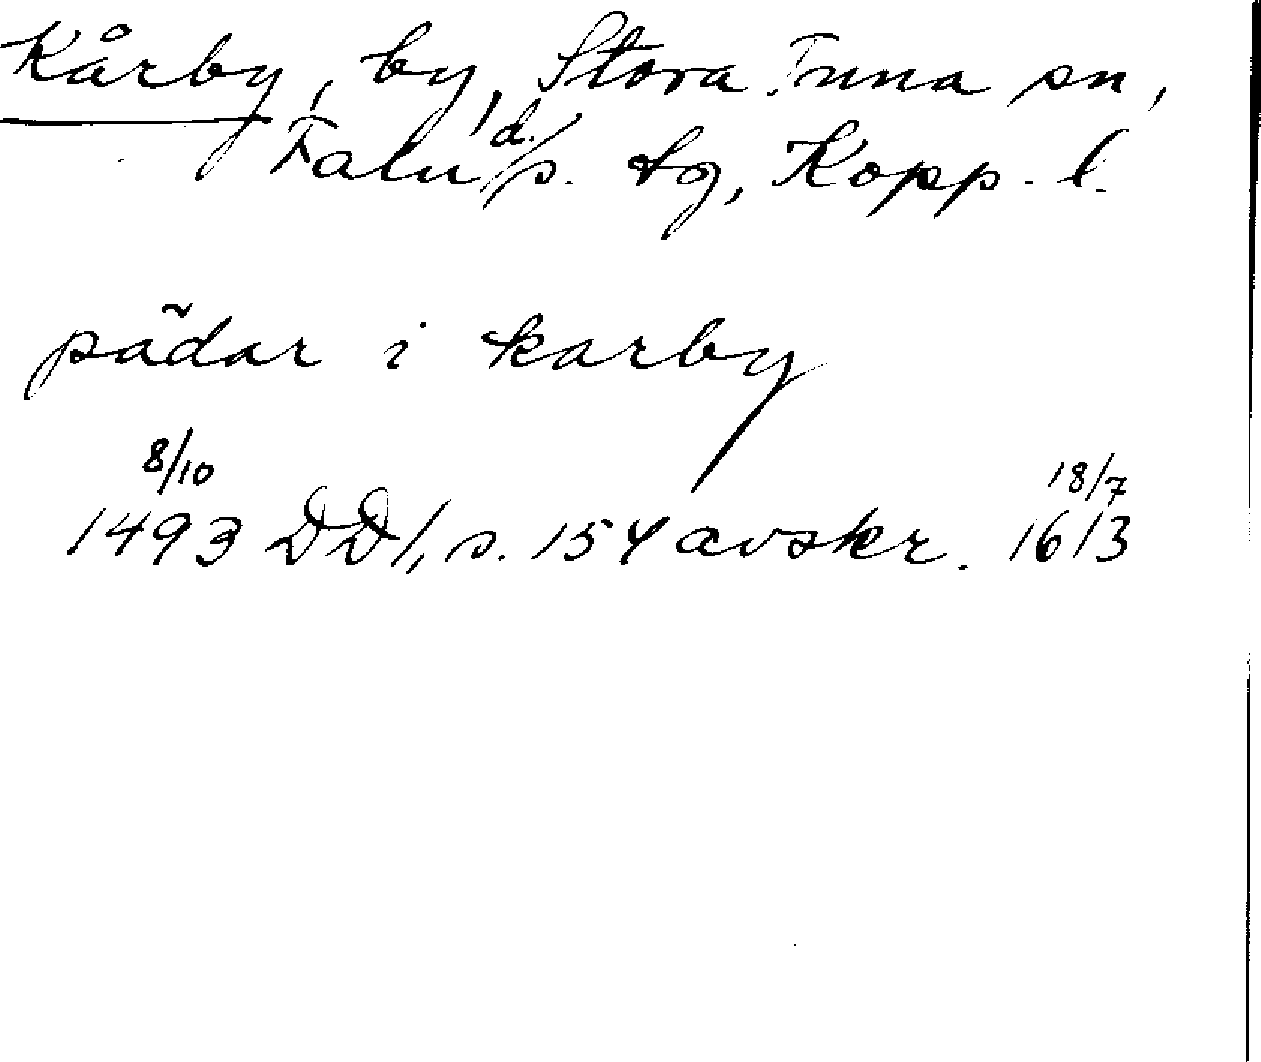 Kårby, by, Stora Tuna sn,
Falu d./s. tg, Kopp. l.
pädar i karby
8/10 18/7
1493 DD1, s. 154 avskr. 1613